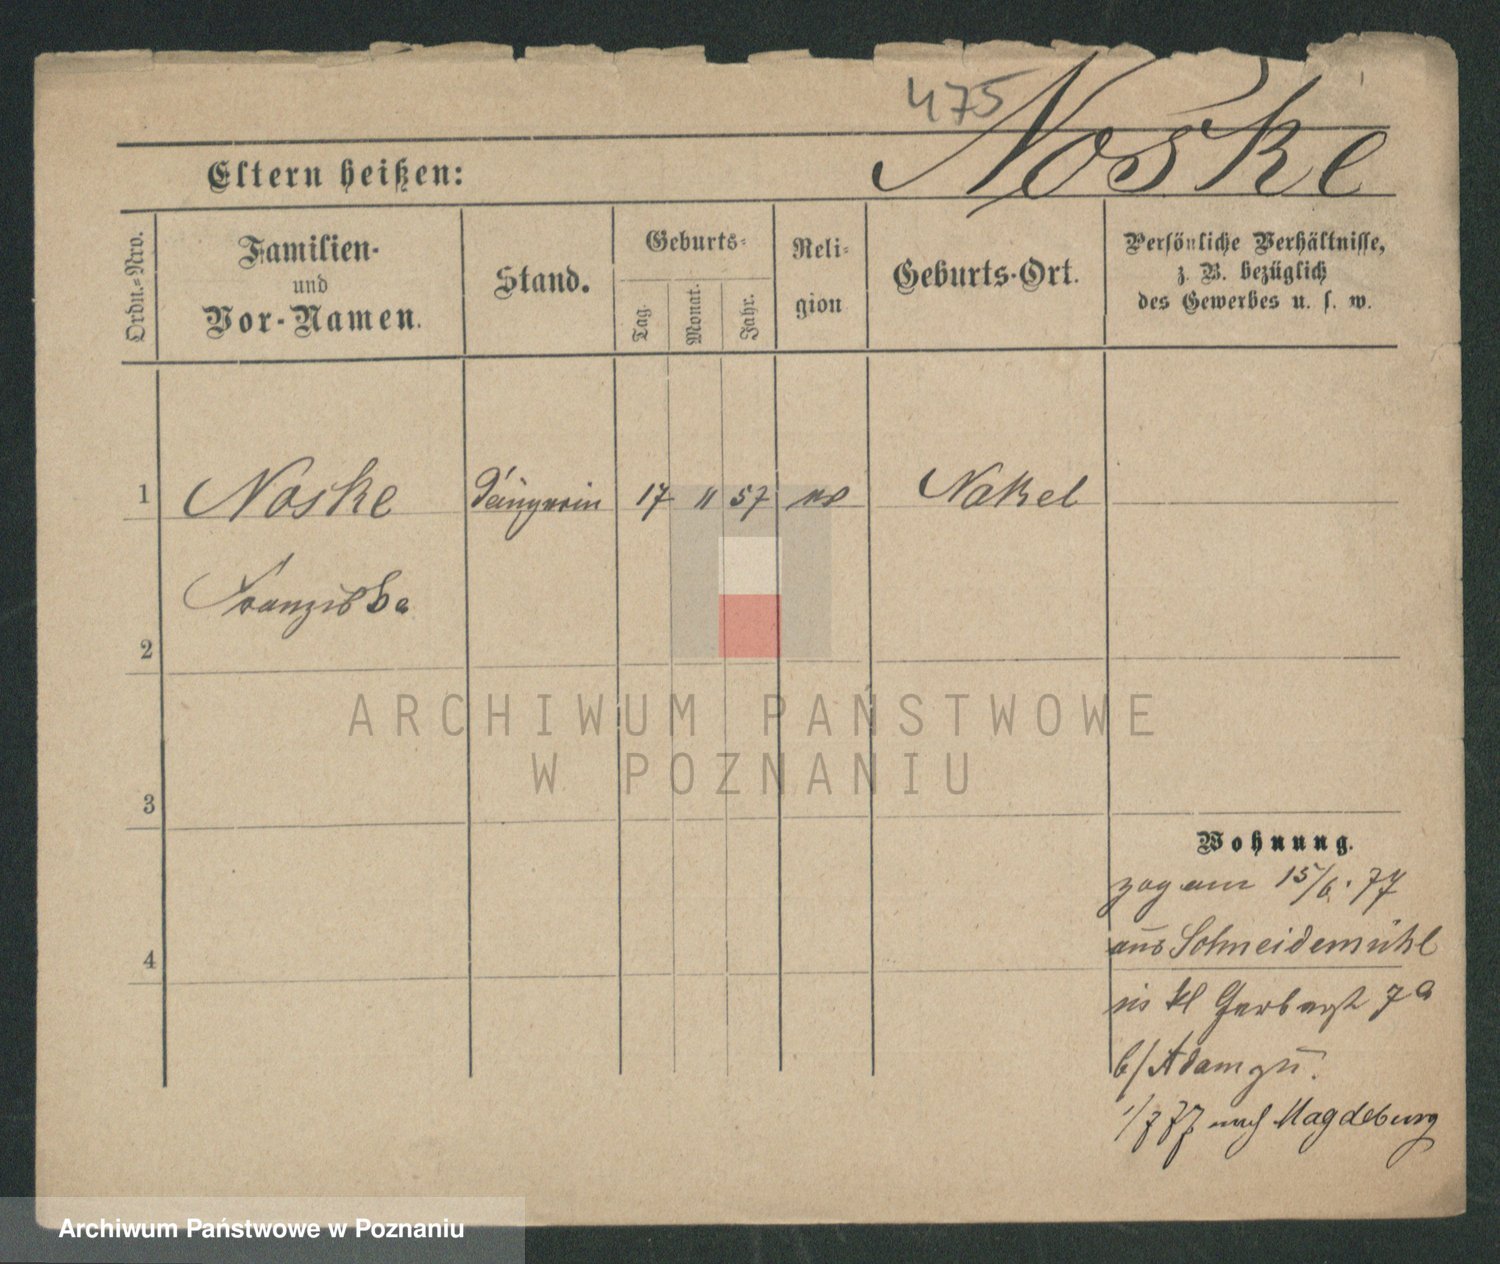 475
Noske
Eltern heißen:
Ordn.-Nro.
Familien-
und
Vor-Namen.
Stand.
Geburts-
Tag.
Monat.
Jahr.
Reli-
gion
Geburts-Ort.
Persönliche Verhältnisse,
z. B. bezüglich
des Gewerbes u. s. w.
1 Noske Sängerin 17 11 57 Nakel
Franziska
2
3
4
Wohnung.
zog am 15/6. 77
aus Schneidemühl
kl Gerberstr 7a
b/ Adam zu.
1/7 77 nach Magdeburg
ARCHIWUM PAŃSTWOWE
W POZNANIU
Archiwum Państwowe w Poznaniu